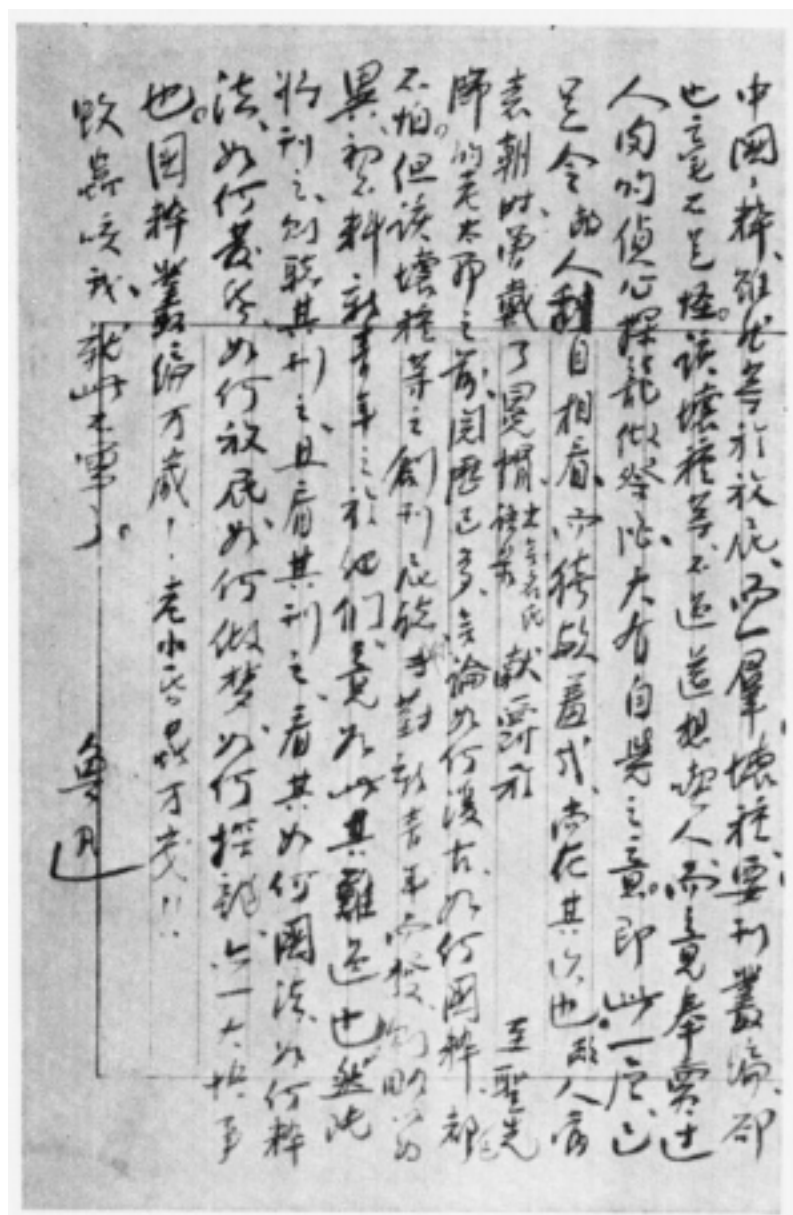 中国國粹、雖然等於放屁、而一羣壞種、要刊叢編、却
也毫不足怪。該壞種等、不過還想吃人、而竟奉賣過
人肉的偵心探龍做祭酒、大有自覺之意。即此一層、已
足令敝人刮目相看、而猗歟羞哉、尚在其次也。敝人當
袁朝時、曾戴了冕帽出無名氏語錄、獻爵於至聖先
師的老太爺之前、閱歷已多、無論如何復古、如何國粹、都已
不怕。但該壞種等之創刊屁志、系專對新青年而發、則略以為
異、初不料新青年之於他們、竟如此其難過也。然既
將刊之、則聽其刊之、且看其刊之、看其如何國法、如何粹
法、如何發昏、如何放屁、如何做夢、如何探龍、亦一大快事
也。國粹叢編万歲！老小昏虫万歲！！
蚊鼻咳我、就此不寫了。
魯迅